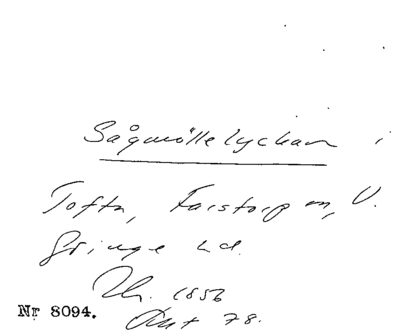 Sågmöllelyckan i
Tofta, Farstorp sn, V.
Göinge hd.
1856
Akt 78.
Nr 8094.